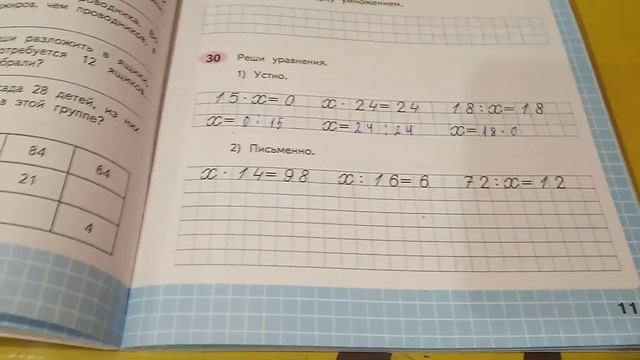 множением.
проводника. В
жиров, чем проводников,
ши разложить в ящики,
потребуется 12 ящиков.
брали?
ада 28 детей, из них
в этой группе?
84 64
21
4
30 Реши уравнения.
1) Устно.
15·x=0 x·24=24 18:x=18
x=0:15 x=24:24 x=18·0
2) Письменно.
x·14=98 x:16=6 72:x=12
11